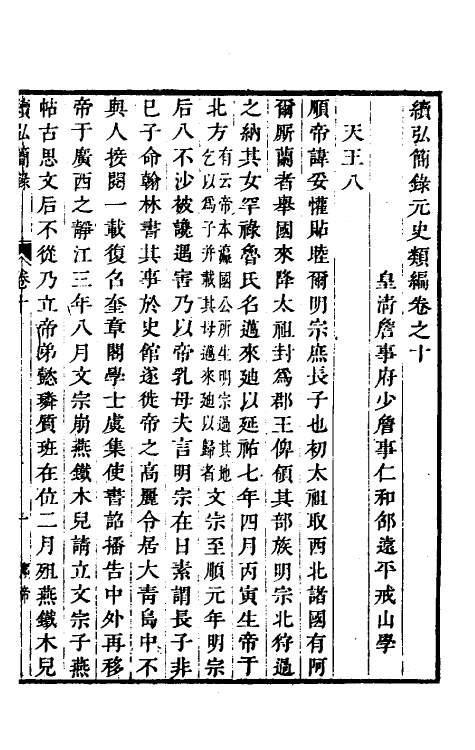 續弘簡錄元史類編卷之十
皇淸詹事府少詹事仁和邵遠平戒山學
天王八
順帝諱妥懽貼睦爾明宗庶長子也初太祖取西北諸國有阿
爾厮蘭者舉國來降太祖封爲郡王俾領其部族明宗北狩過
之納其女罕祿魯氏名邁來廸以延祐七年四月丙寅生帝于
北方有云帝本瀛國公所生明宗過其地乞以爲子并載其母邁來廸以歸者文宗至順元年明宗
后八不沙被讒遇害乃以帝乳母夫言明宗在日素謂長子非
已子命翰林書其事於史館遂徙帝之高麗令居大靑島中不
與人接閱一載復名奎章閣學士虞集使書詔播告中外再移
帝于廣西之靜江三年八月文宗崩燕鐵木兒請立文宗子燕
帖古思文后不從乃立帝弟懿璘質班在位二月殂燕鐵木兒
續弘簡錄
卷十
一
順帝